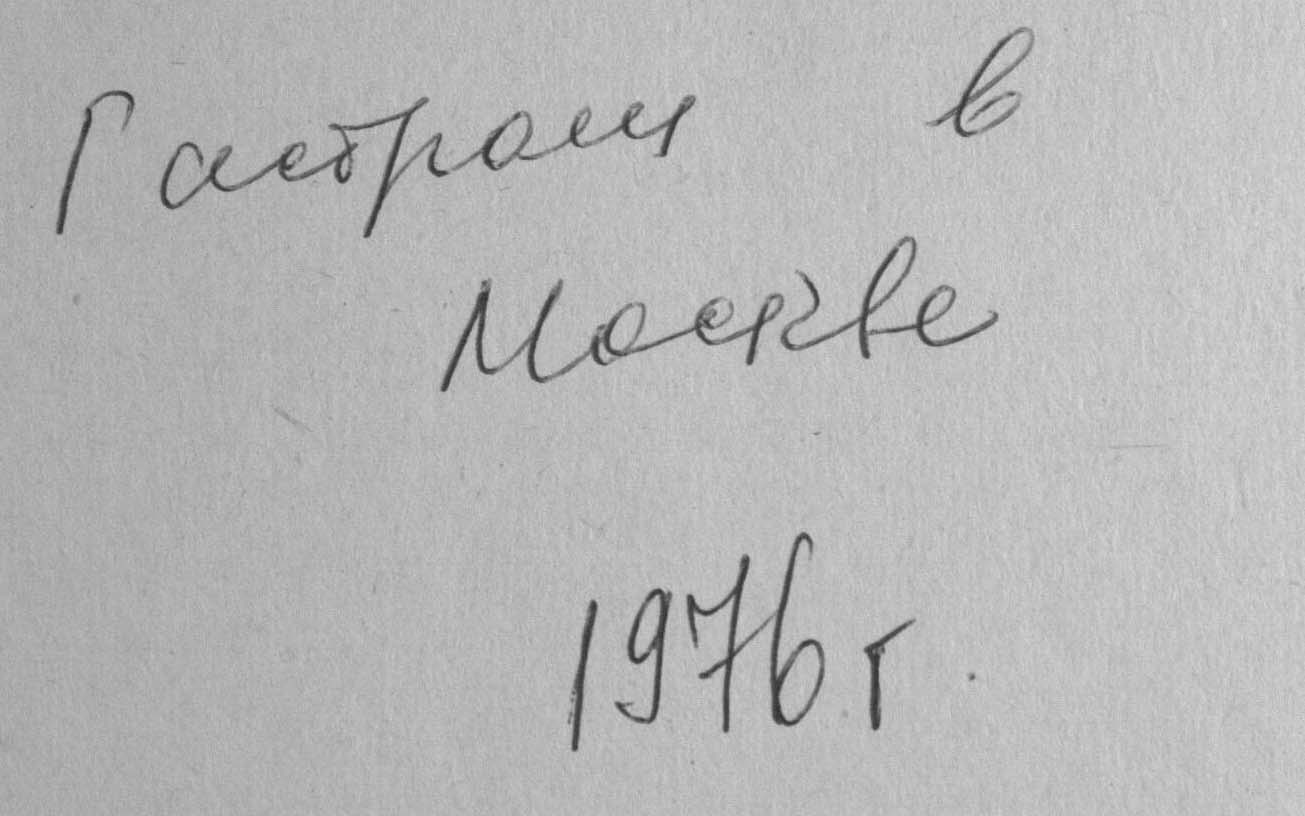 Гастроли в
Москве
1976 г.